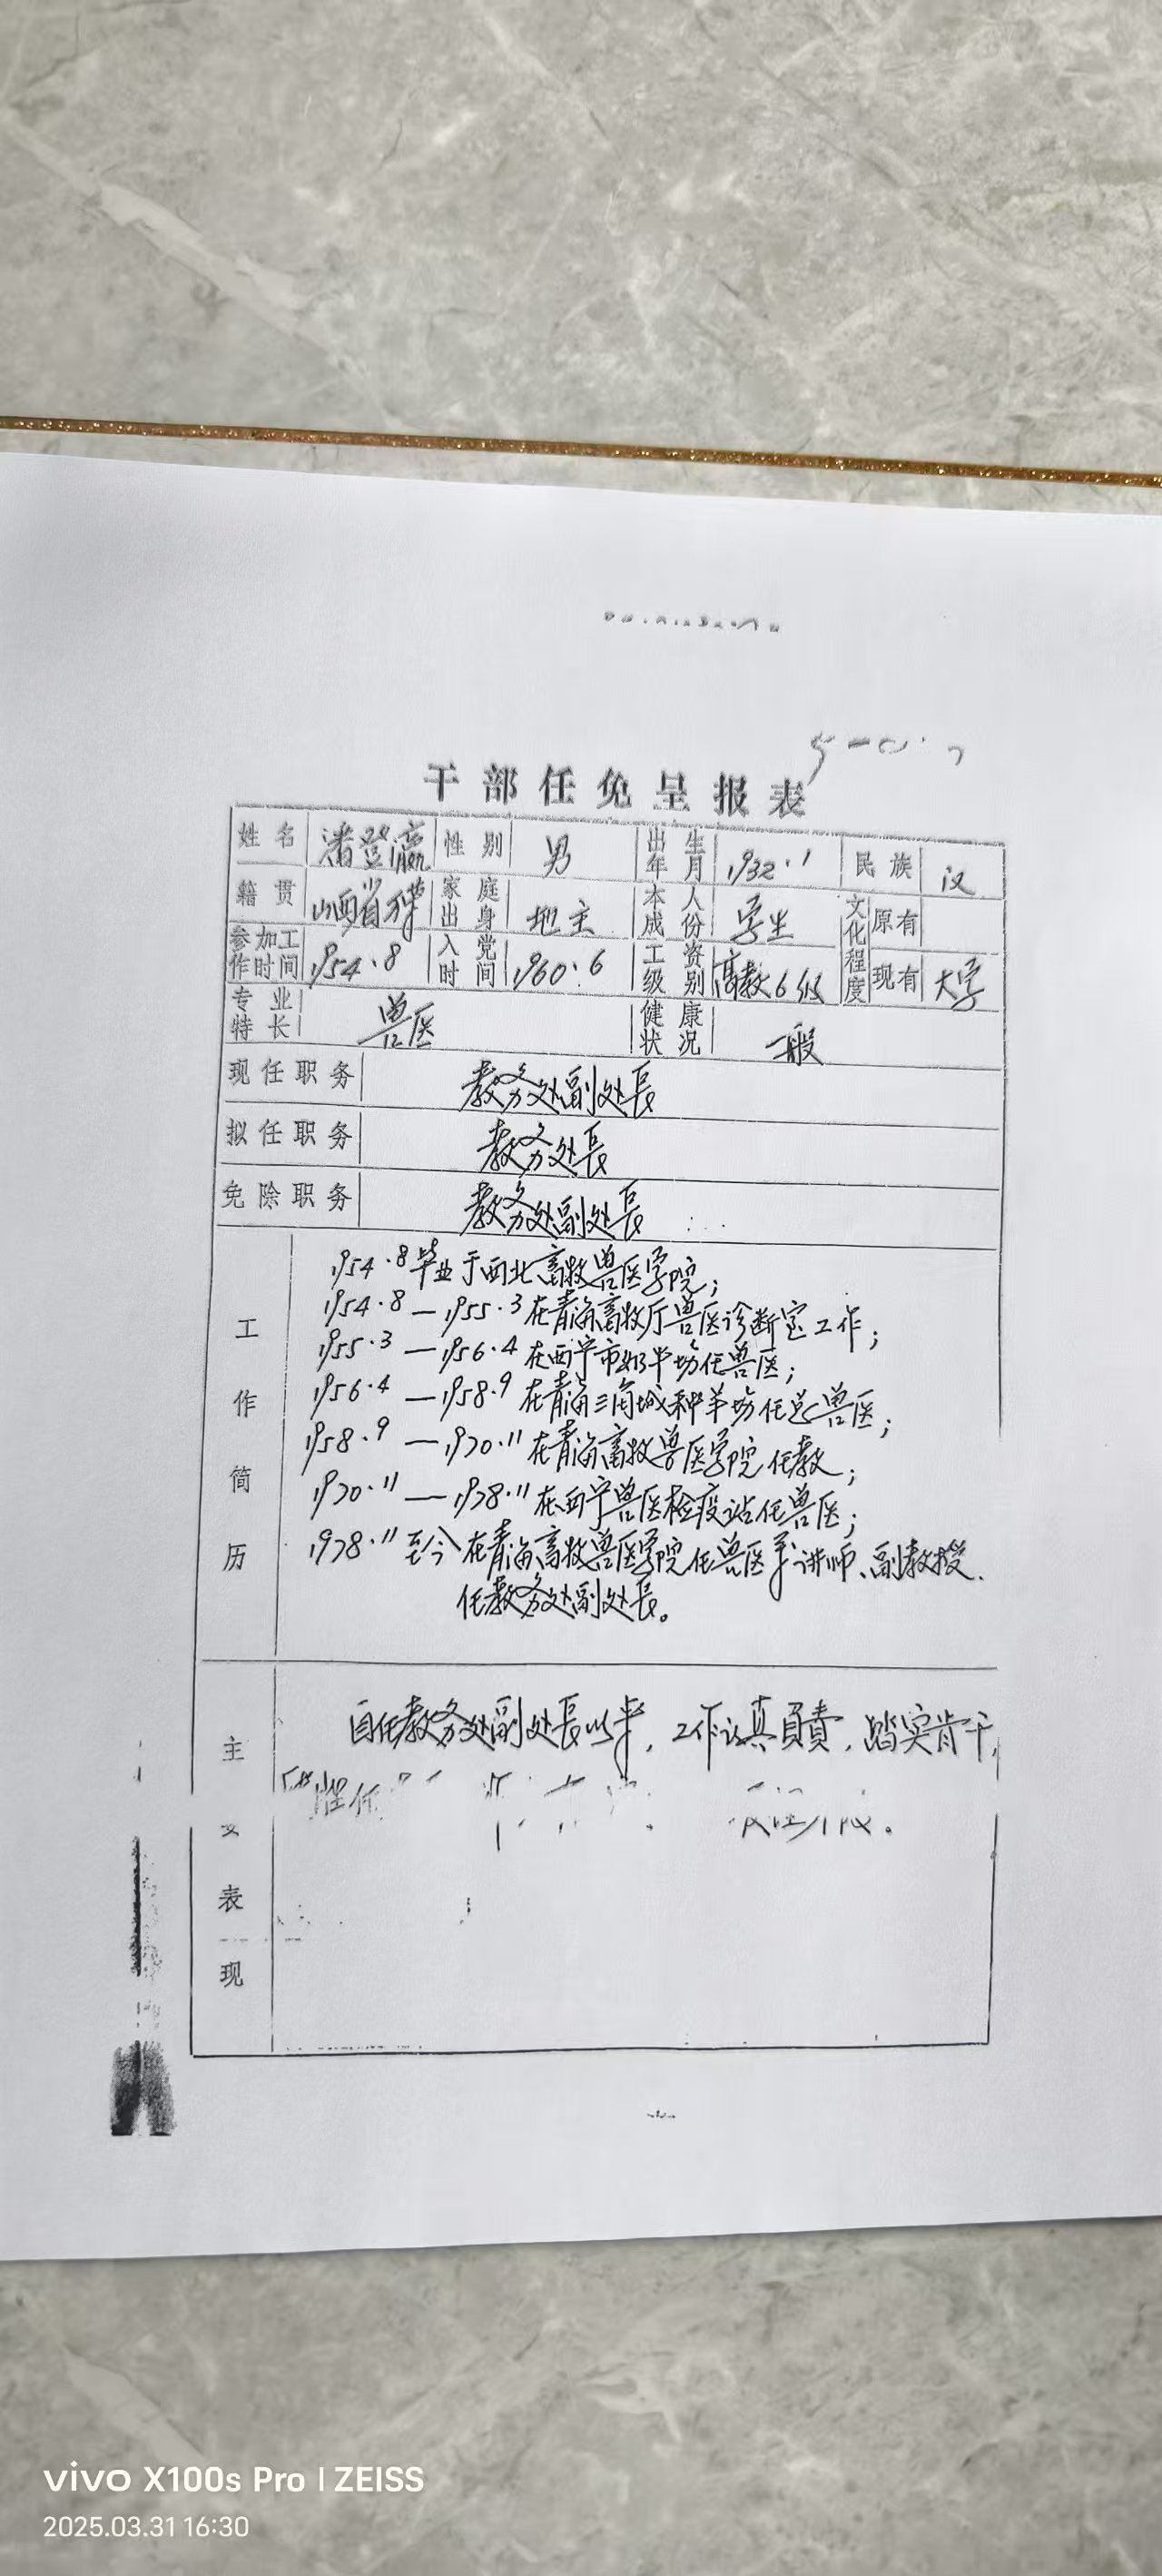 干部任免呈报表
姓名 潘登瀛 性别 男 出生年月 1932.1 民族 汉
籍贯 山西省 家庭出身 地主 本人成份 学生 文化程度 原有
参加工作时间 1954.8 入党时间 1960.6 工资级别 高教6级 现有 大学
专业特长 兽医 健康状况 一般
现任职务 教务处副处長
拟任职务 教务处長
免除职务 教务处副处長
工作简历
1954.8毕业于西北畜牧兽医学院;
1954.8—1955.3在青海畜牧厅兽医诊断室工作;
1955.3—1956.4在西宁市奶牛场任兽医;
1956.4—1958.9在青海三角城种羊场任总兽医;
1958.9—1970.11在青海畜牧兽医学院任教;
1970.11—1978.11在西宁兽医检疫站任兽医;
1978.11至今在青海畜牧兽医学院任兽医系讲师、副教授.
任教务处副处長。
主要表现
自任教务处副处長以来,工作认真負責,踏实肯干,
vivo X100s Pro | ZEISS
2025.03.31 16:30